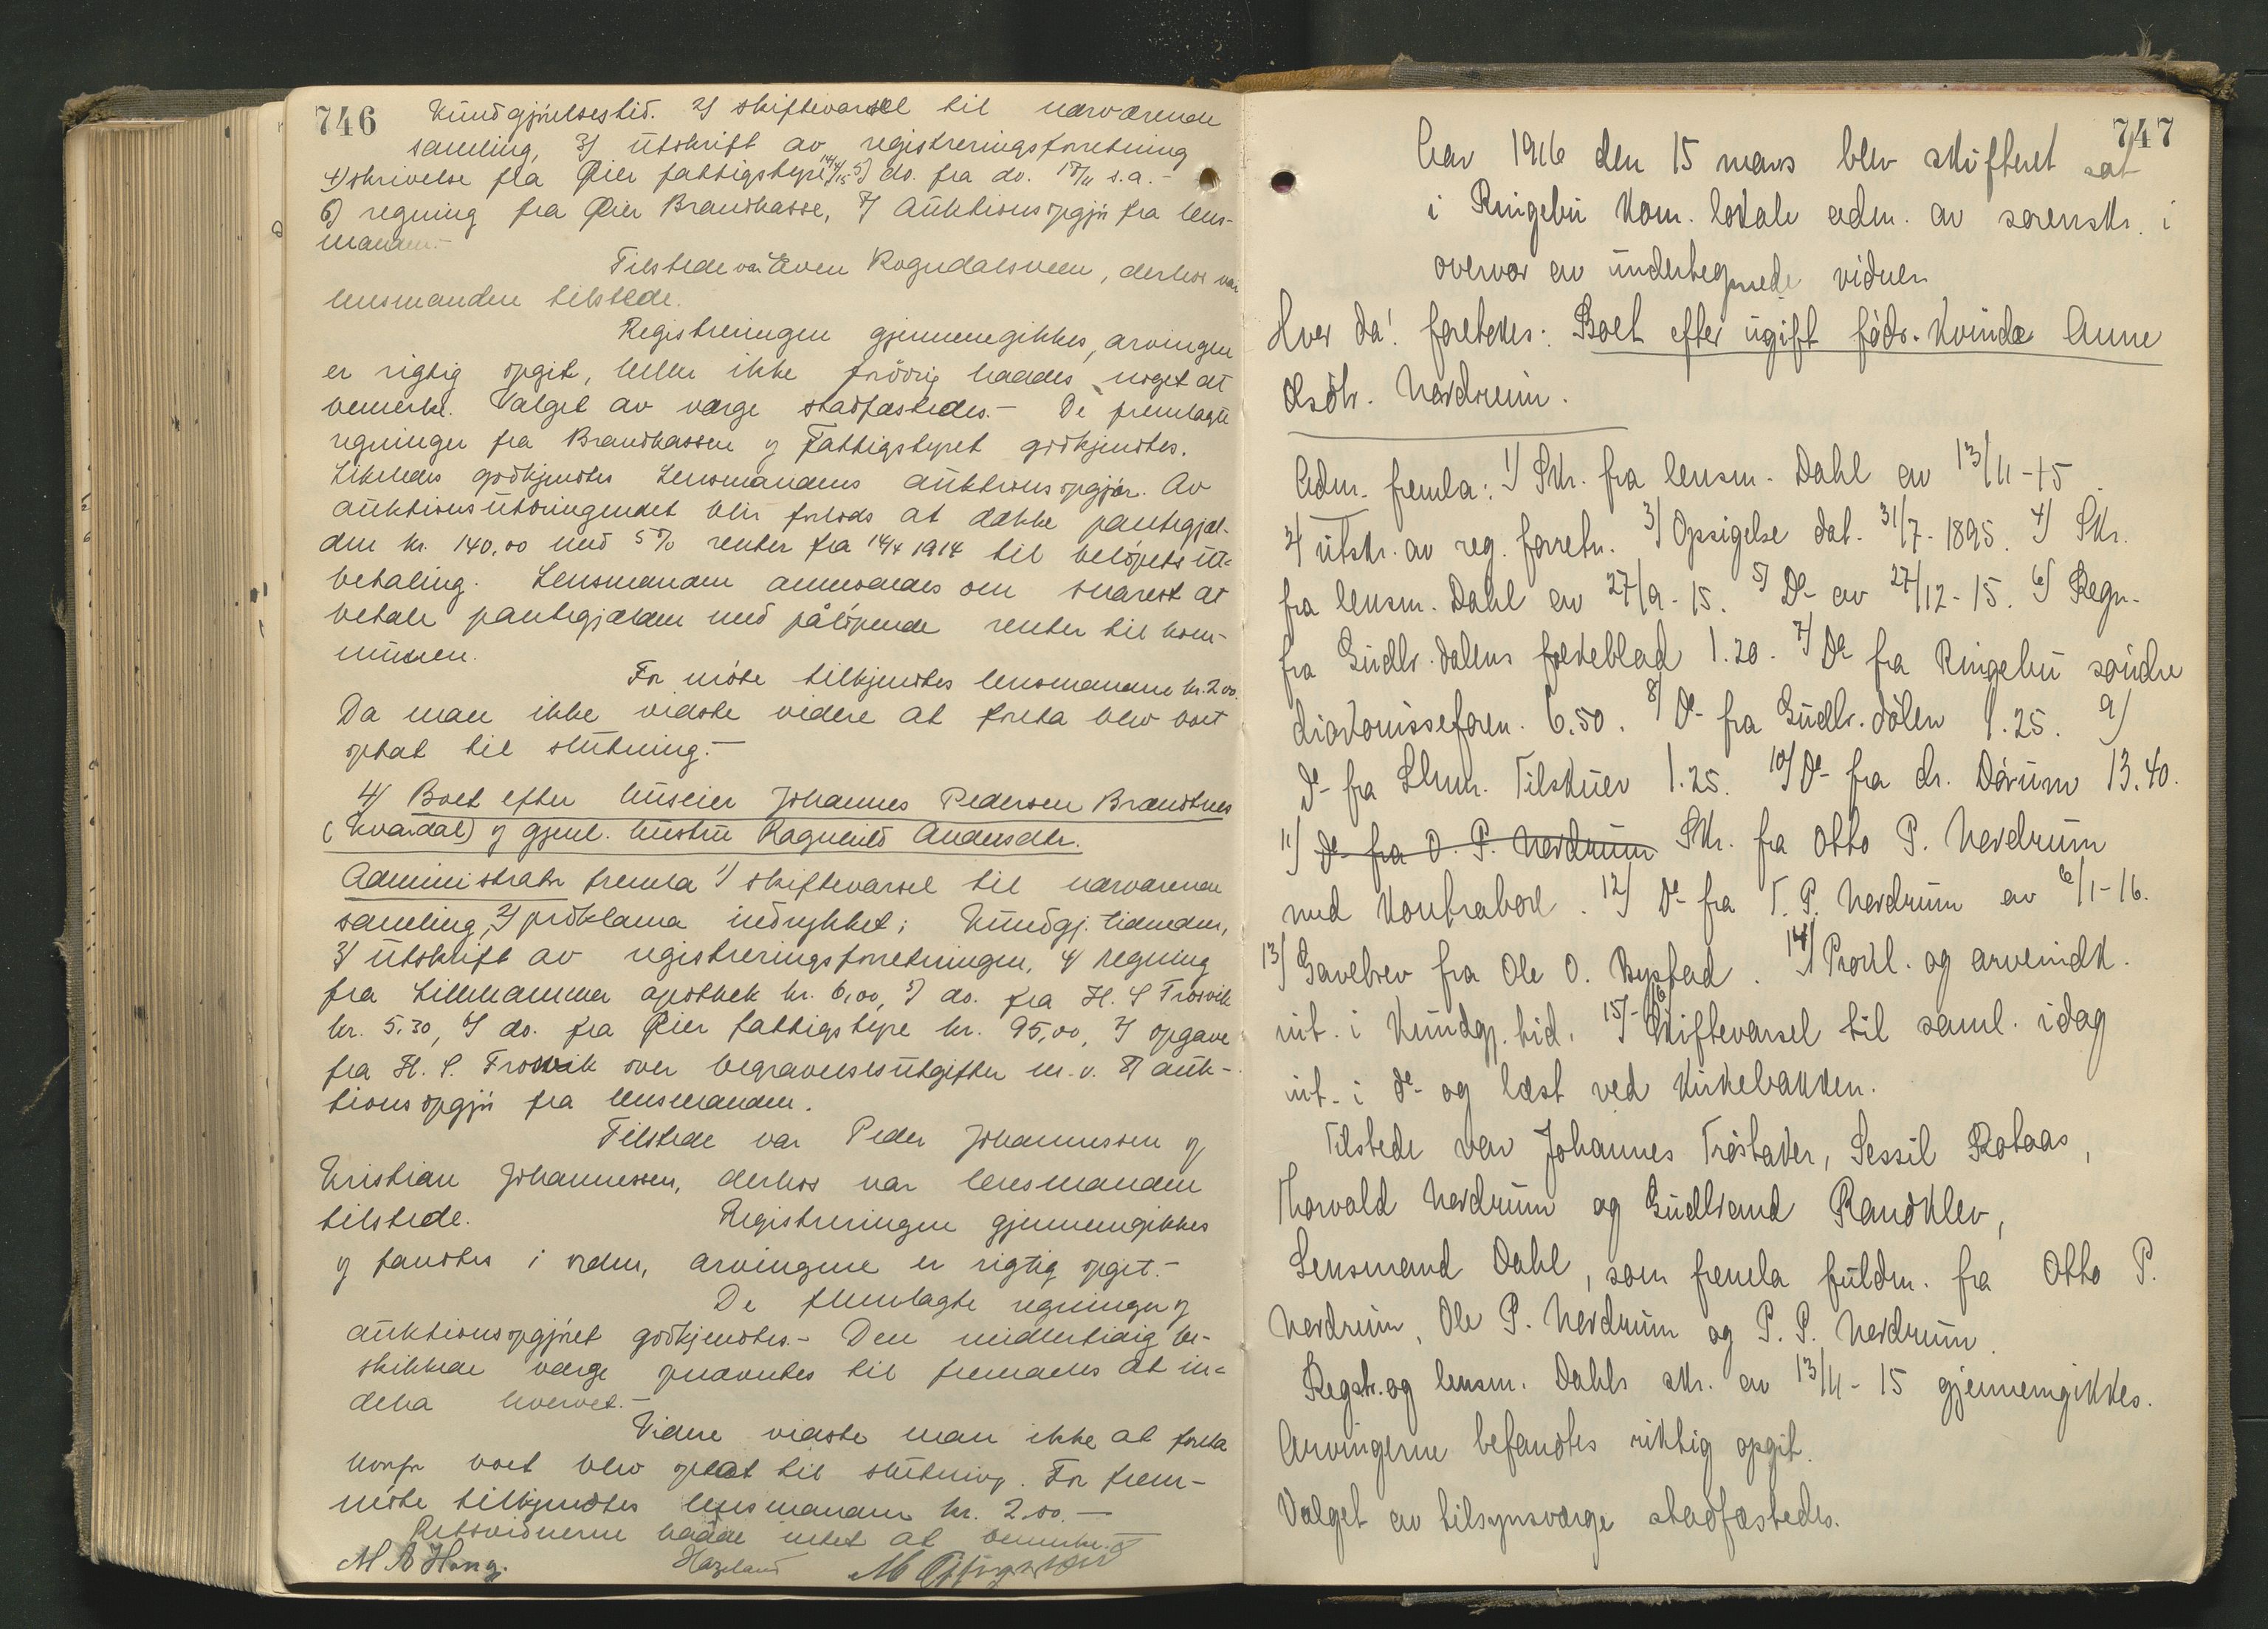 746
Kundgjørelsestid. 2) skiftevarsel til nærværende
samling, 3) utskrift av registreringsforretning
4) skrivelse fra Øier fattigstyre 14/4 15 5) do. fra do. 15/11 s.a. -
6) regning fra Øier Brandkasse, 7) Auktionsopgjør fra lens-
manden. -
Tilstede var Even Rogndalsveen, derhos var
lensmanden tilstede.
Registreringen gjennemgikkes, arvingen
er rigtig opgit, heller ikke forøvrig haddes noget at
bemerke. Valget av værge stadfæstedes. - De fremlagte
regninger fra Brandkassen og Fattigstyret godkjendtes.
Likeledes godkjendtes Lensmandens auktionsopgjør. Av
auktionsutbringendet blir forlods at dække pantegjæl-
den kr. 140,00 med 5% renter fra 14/4 1914 til beløpets ut-
betaling. Lensmanden anmodedes om snarest at
betale pantegjælden med påløpende renter til kom-
munen.
For møte tilkjendtes lensmanden kr. 2.00.
Da man ikke vidste videre at foreta blev boet
optat til slutning. -
4) Boet efter huseier Johannes Pedersen Brandtnes
(Kvardal) og gjenl. hustru Ragnhild Andersdtr.
Administrator fremla 1) skiftevarsel til nærværende
samling, 2) proklama indrykket i Kundgj. tidenden,
3) utskrift av registreringsforretningen, 4) regning
fra Lillehammer apothek kr. 6,00, 5) do. fra H. S Frosvik
kr. 5.30, 6) do. fra Øier fattigstyre kr. 95,00, 7) opgave
fra H. S. Frosvik over begravelsesutgifter m.v. 8) auk-
tionsopgjør fra lensmanden.
Tilstede var Peder Johannessen og
Kristian Johannessen, derhos var lensmanden
tilstede. Registreringen gjennemgikkes
og fandtes i orden, arvingene er rigtig opgit. -
De fremlagte regninger og
auktionsopgjøret godkjendtes. - Den midlertidig be-
skikkede værge opnævntes til fremdeles at in-
deha hvervet. -
Videre vidste man ikke at foreta
hvorfor boet blev optat til slutning. For frem-
møte tilkjendtes lensmanden kr. 2.00. -
Retsvidnerne hadde intet at bemerke.
M A Haug. Hazeland
747
Aar 1916 den 15 mars blev skifteret sat
i Ringebu kom. lokale adm. av sorenskr. i
overvær av undertegnede vidner
Hvor da! foretokes: Boet efter ugift føder. kvinde Anne
Olsdtr. Nordrum.
Adm. fremla: 1) Skr. fra lensm. Dahl av 13/11-15.
2) utskr. av reg. forretn. 3) Opsigelse dat. 31/7-1895. 4) Skr.
fra lensm. Dahl av 27/9-15. 5) Do av 27/12-15. 6) Regn.
fra Gudbr.dalens folkeblad 1.20. 7) Do fra Ringebu søndre
diakonisseforen. 6.50. 8) Do fra Gudbr.dølen 1.25. 9)
Do fra Lhmr. Tilskuer 1.25. 10) Do fra dr. Dørum 13.40.
11) Do fra O. P. Nordrum Skr. fra Otto P. Nordrum
med kontrabok. 12) Do fra T. P. Nordrum av 6/1-16.
13) Gavebrev fra Ole O. Bystad. 14) Prokl. og arveindk.
int. i Kundgj. tid. 15)-16) Skiftevarsel til saml. idag
int. i do og læst ved kirkebakken.
Tilstede var Johannes Trøstaker, Sessil Rotaas,
Thorvald Nordrum og Gudbrand Randklev,
Lensmand Dahl, som fremla fuldm. fra Otto P.
Nordrum, Ole P. Nordrum og P. P. Nordrum.
Regstr. og lensm. Dahls skr. av 13/11-15 gjennemgikkes.
Arvingerne befandtes riktig opgit.
Valget av tilsynsværge stadfæstedes.